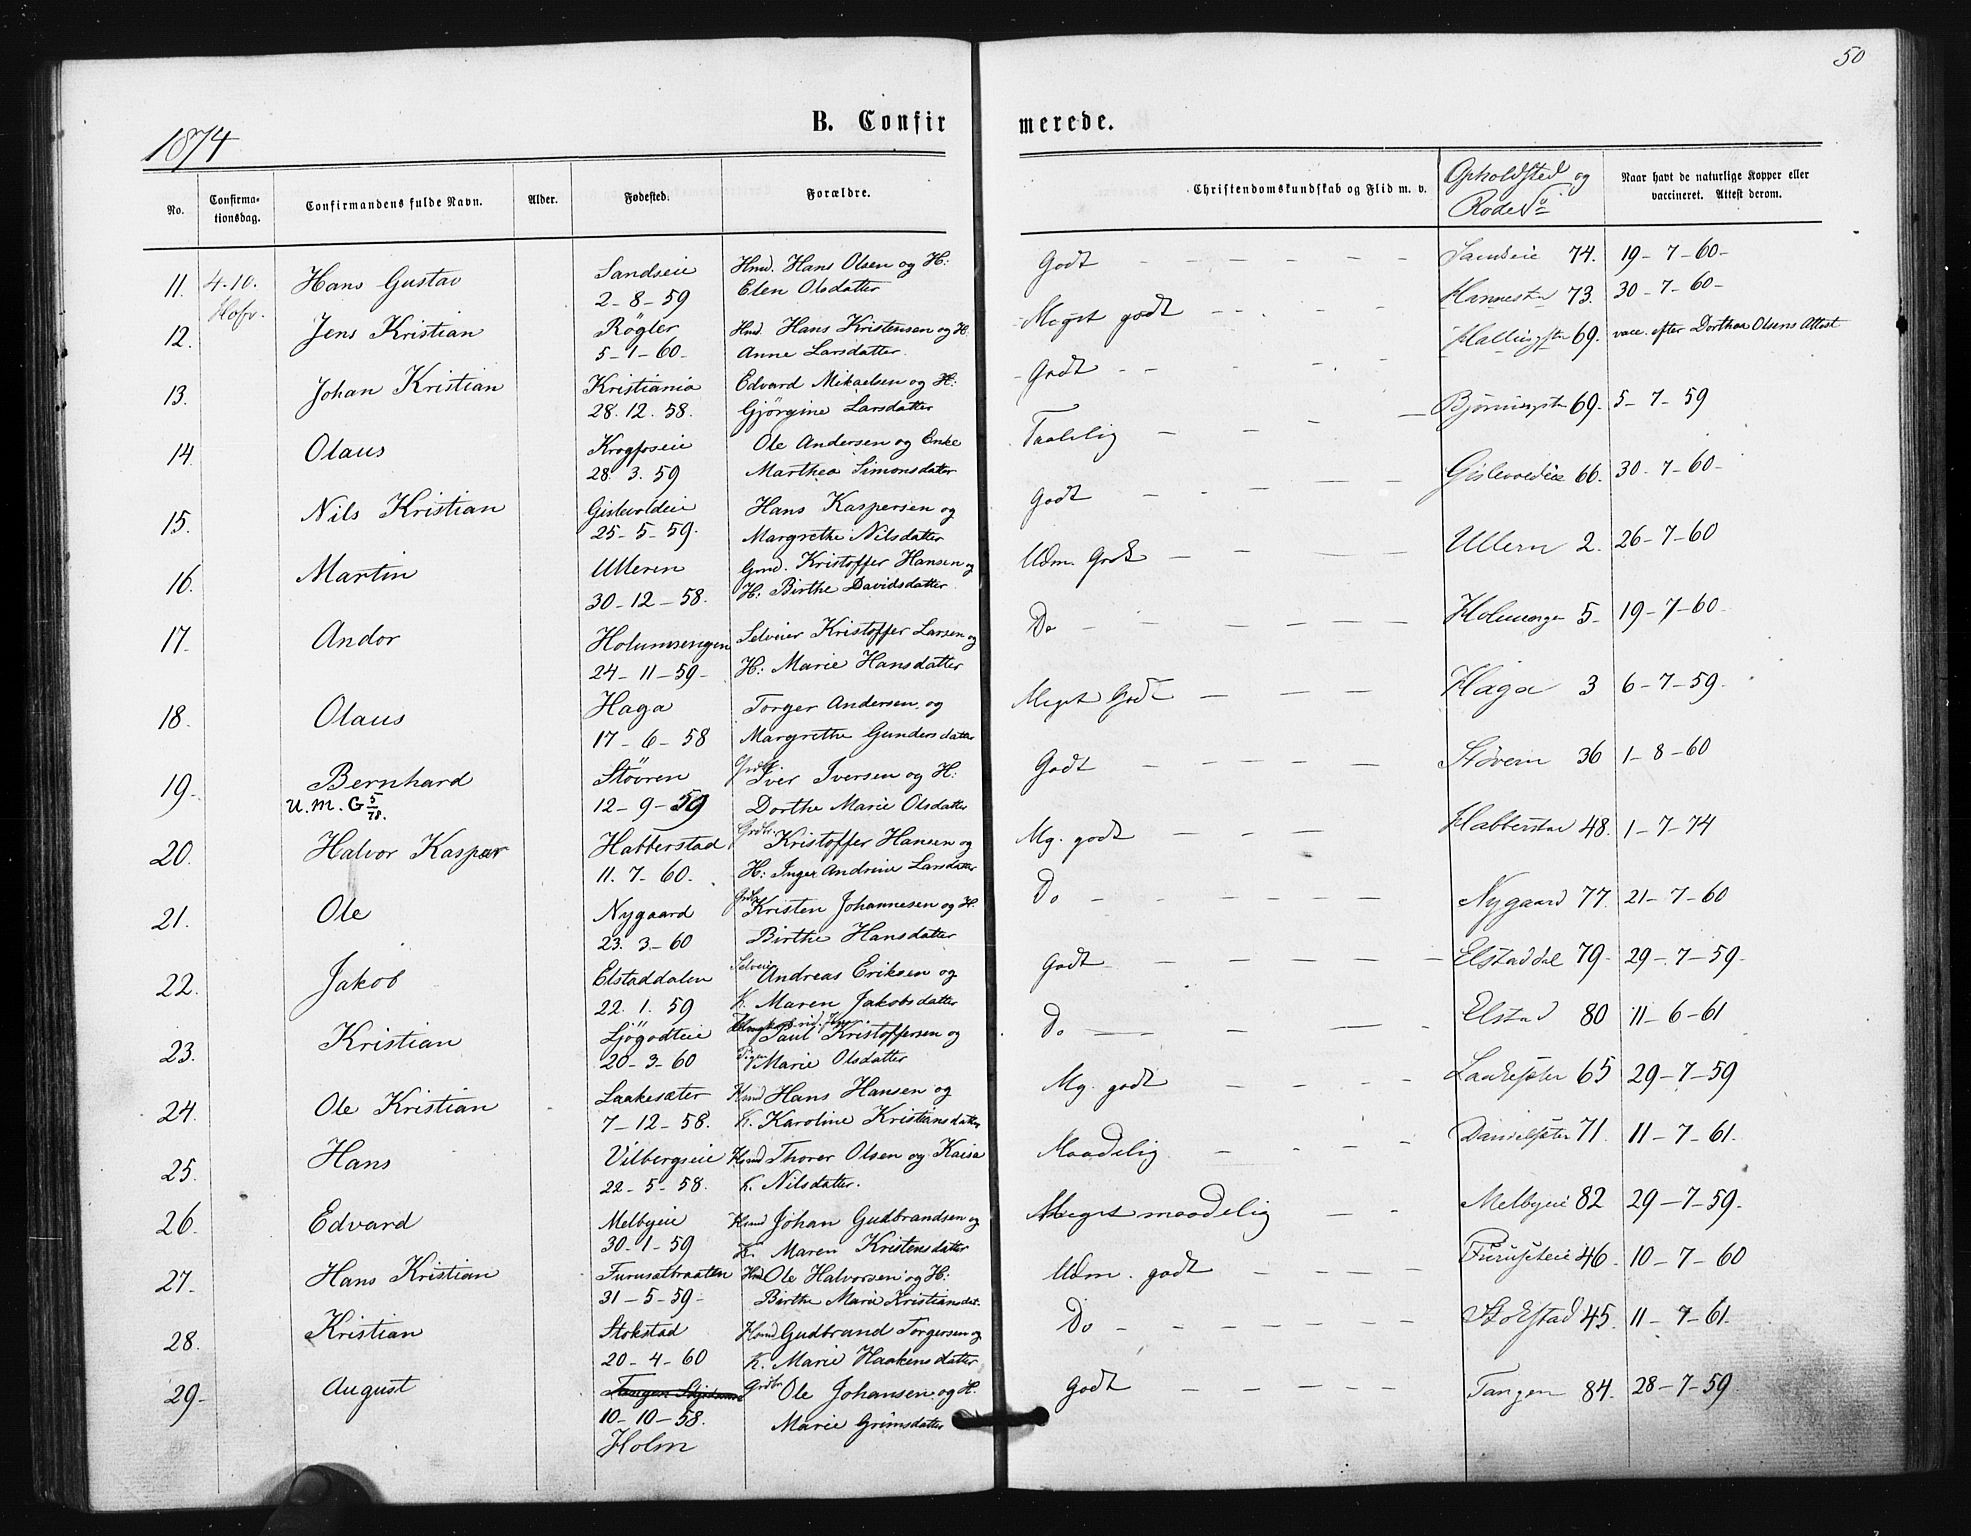 50
1874
B. Confirmerede.
No. Confirmationsdag. Confirmandens fulde Navn. Alder. Fødested. Forældre. Christendomskundskab og Flid m. v. Opholdsted og Rode No Naar havt de naturlige Kopper eller vaccineret. Attest derom.
11. 4-10. Hans Gustav Sandseie Hmd. Hans Olsen og H: Godt 74. 19-7-60-
Hofv. 2-8-59 Elen Olsdatter 73. 30-7-60-
12. Jens Kristian Røgler Hmd. Hans Kristensen og H. Meget godt
5-1-60- Anne Larsdatter 69. vacc. efter Dorthea Olsens Attest
13. Johan Kristian Kristiania Edvard Mikaelsen og H: Godt
28.12.58. Gjørgine Larsdatter 69. 5-7-59
14 Olaus Krogfoseie Ole Andersen og Enke Taalelig
28.3.59 Marthea Simonsdatter
15. Nils Kristian Gislevoldeie Hans Kaspersen og Godt Gislevoldeie 66. 30-7-60-
25-5-59. Margrethe Nilsdatter
16. Martin Ulleren Grmd. Kristoffer Hansen og Udm. Godt Ullern 2. 26-7-60
30-12-58. H: Birthe Davidsdatter
17. Andor Holumsengen Selveier Kristoffer Larsen og Do 5- 19-7-60
24-11-59- H: Marie Hansdatter
18. Olaus Haga Torger Andersen og Meget Godt Haga 3 6-7-59.
17-6-58 Margrethe Gundersdatter
19. Bernhard Støvren Iver Iversen og H: Godt Støvern 36 1-8-60
U.M.G 5/78. 12-9-59 Dorthe Marie Olsdatter
20. Halvor Kasper Habberstad Kristoffer Hansen og Mg. godt Habberstad 48. 1-7-74
11.7-60. H: Inger Andrine Larsdatter
21. Ole Nygaard Kristen Johannesen og H. Do Nygaard 77. 21-7-60
23.3-60 Birthe Hansdatter
22. Jakob Elstaddalen Selveier Andreas Eriksen og Godt Elstaddal 79- 29-7-59-
22.1.59 K. Maren Jakobsdatter
23. Kristian Ljøgodteie Paul Kristoffersen og Do Elstad 80 11-6-61
20-3-60 Pigen Marie Olsdatter
24. Ole Kristian Laakesæter Hmd Hans Hansen og Mg. godt Laakesæter 65 29-7-59
7-12-58. K. Karoline Kristiansdatter
25. Hans Vilbergseie Hmd Thorer Olsen og Kaisa Maadelig 71. 11-7-61.
22-5-58. K. Nilsdatter.
26. Edvard Melbyeie Hmd Johan Gudbrandsen og Meget maadelig Melbyeie 82 29-7-59.
30-1-59 K. Maren Kristensdatter
27. Hans Kristian Furusetbraaten Hmd Ole Halvorsen og H: Udm. godt Furuseteie 46. 10-7-60
31-5-59- Birthe Marie Kristiansdat.
28. Kristian Stokstad Hmd Gudbrand Torgersen og Do Stokstad 45. 11-7-61.
20-4-60 K. Marie Haakensdatter
29- August Tangen Grdbr Ole Johansen og H. Godt Tangen 84. 28-7-59.
10-10-58. Marie Grimsdatter
Holm